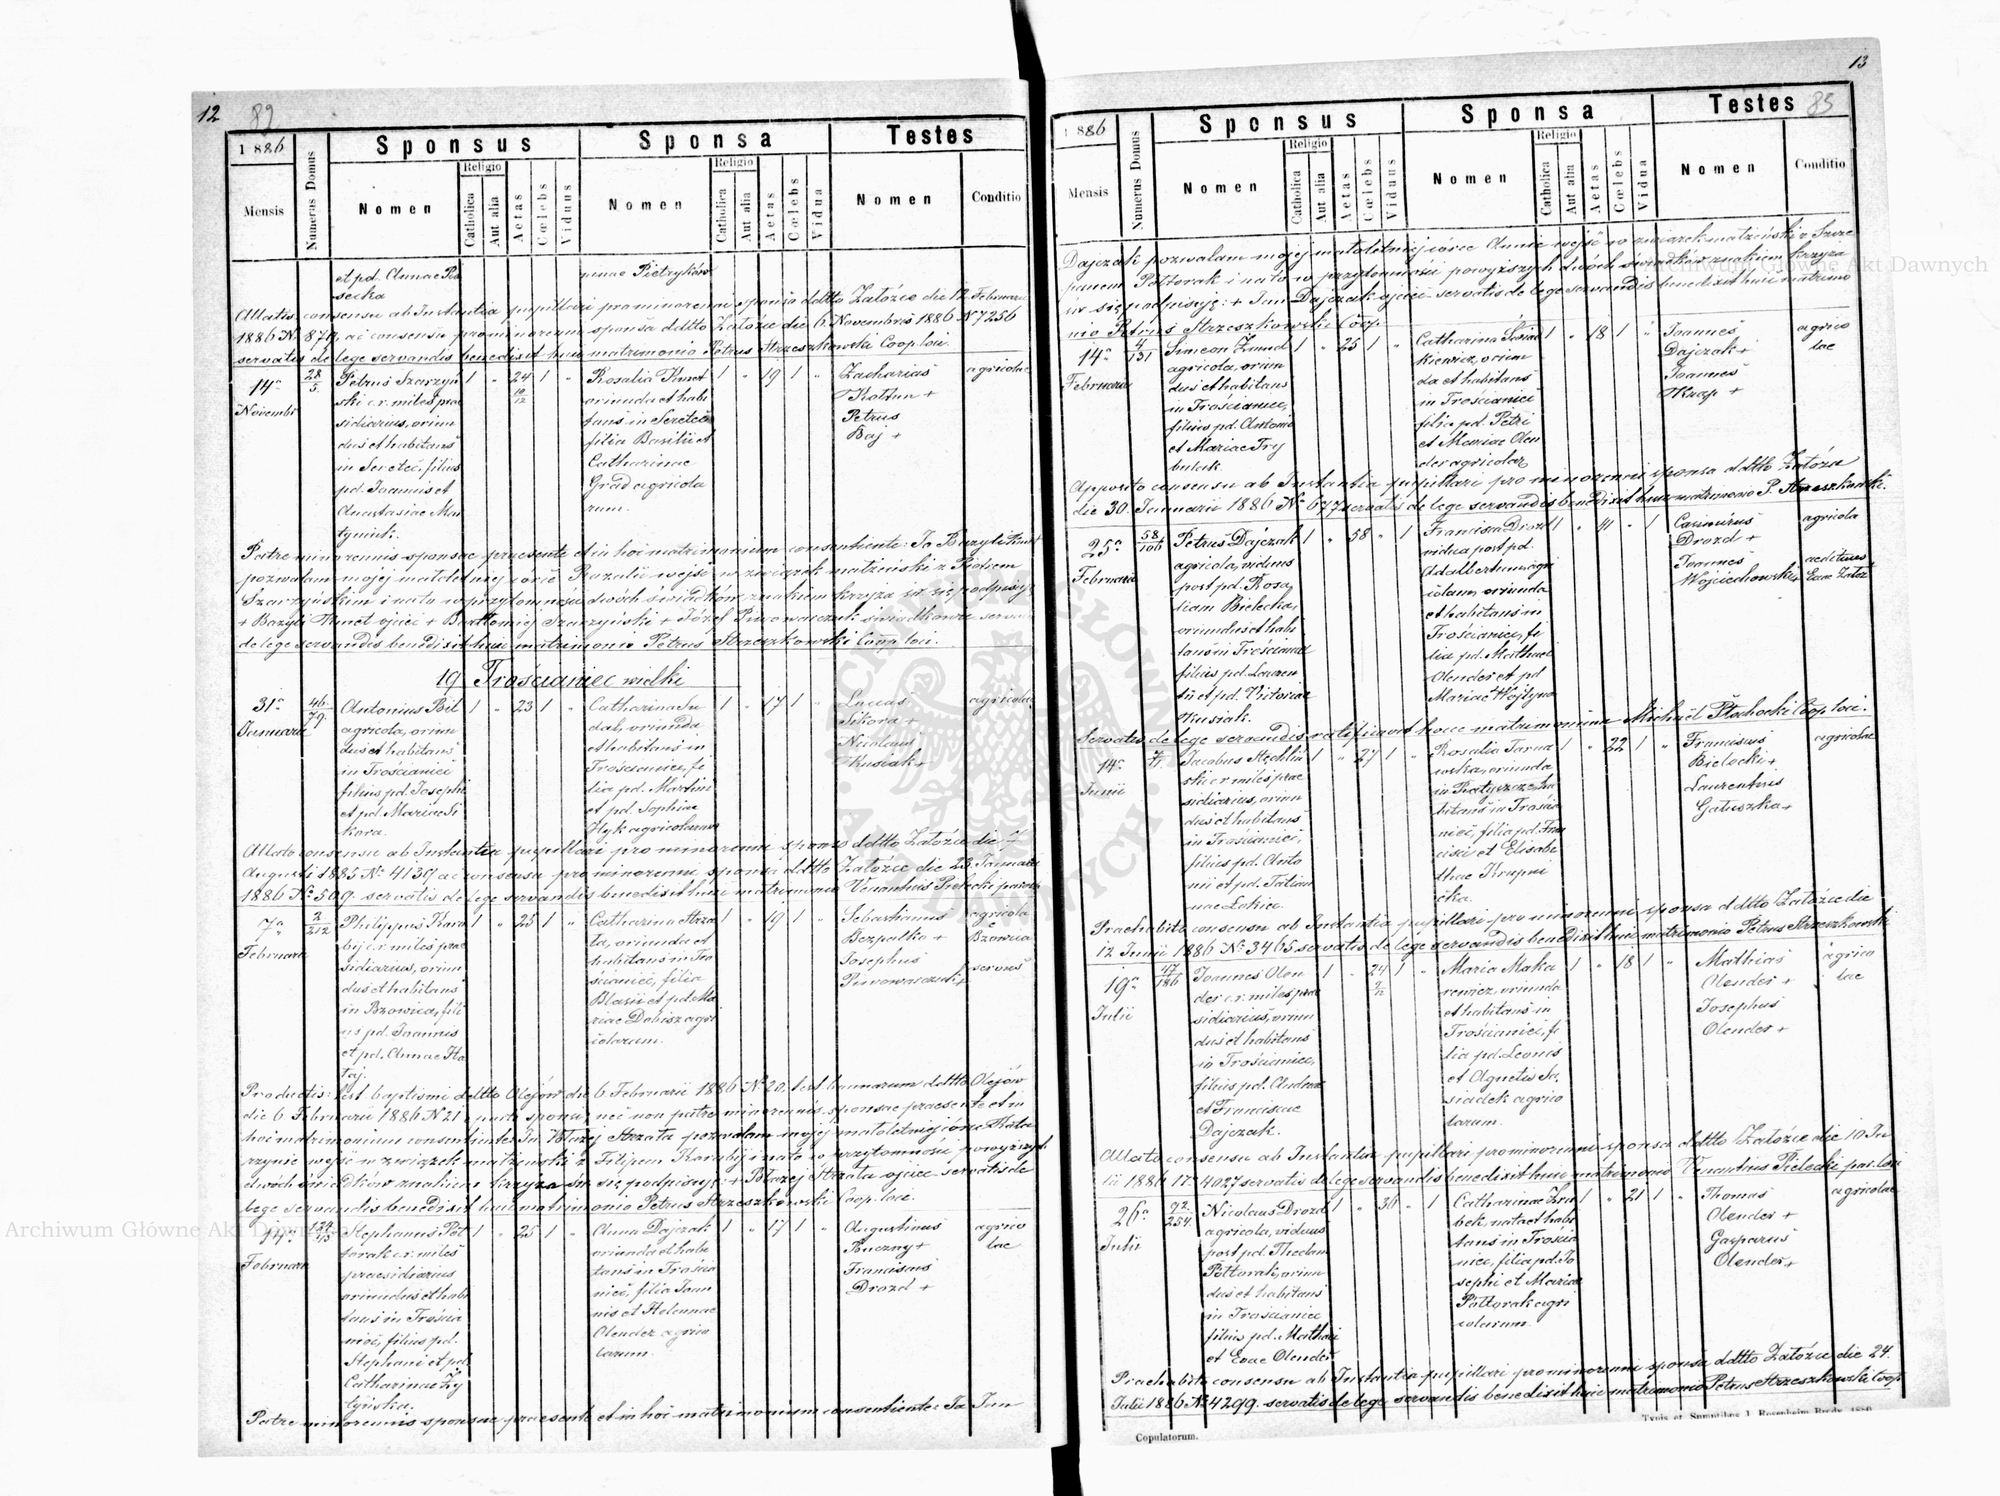 12
82
1886
Sponsus
Sponsa
Testes
Mensis
Numerus Domus
Nomen
Religio
Catholica
Aut alia
Aetas
Cœlebs
Viduus
Nomen
Religio
Catholica
Aut alia
Aetas
Cœlebs
Vidua
Nomen
Conditio
et pd. Annae
secka
Allatis consensu ab Instantia pupillari pro minorenni sponso ddtto Załózce die 12 Februarii
1886 N 874, ac consensu pro minorenni sponsa ddtto Załózce die 6 Novembris 1886 N 7256
servatis de lege servandis benedixit huic matrimonio Petrus Strzeszkowski Coop loci.
14a
Novembr
28
5
Petrus Szarzyń
ski c.r. miles prae
sidiarius, oriun
dus et habitans
in Seretec, filius
pd. Joannis et
Anastasiae
1
"
24
1
"
Rosalia
oriunda et habi
tans in Seretec
filia Basilii et
Catharinae
Grad agricola
rum.
1
"
19
1
"
Zacharias
Petrus
Baj +
agricolae
Patre minorennis sponsae praesente et in hoc matrimonium consentiente: Ja Bazyli
pozwalam mojej małoletniej córce Rozalii wejść w związek małżeński z Piotrem
Szarzyńskim i na to w przytomności dwóch świadków znakiem krzyża św się podpisuję
+ Bazyli ojciec + Bartłomiej Szarzyński + Józef świadkowie servatis
de lege servandis benedixit huic matrimonio Petrus Strzeszkowski Coop loci.
19 Trościaniec wielki
31a
Januarii
46
79
Antonius
agricola, oriun
dus et habitans
in Trościaniec
filius pd. Josephi
et pd. Mariae Si
kora.
1
"
23
1
"
Catharina
oriunda
et habitans in
Trościaniec, fi
lia pd. Martini
et pd. Sophiae
Hyk agricolarum
1
"
17
1
"
Lucas
Sikora +
Nicolaus
Kusiak +
agricolae
Allato consensu ab Instantia pupillari pro minorenni sponso ddtto Załózce die 7
Augusti 1885 N 4130 ac consensu pro minorenni sponsa ddtto Załózce die 23 Januarii
1886 N 509. servatis de lege servandis benedixit huic matrimonio Venantius Pielecki paroch
7a
Februarii
2
212
Philippus Kara
bij c.r. miles prae
sidiarius, oriun
dus et habitans
in Bzowica, fili
us pd. Joannis
et pd. Annae Ha
taj.
1
"
25
1
"
Catharina Strza
ła, oriunda et
habitans in Tro
ścianiec, filia
Blasii et pd. Ma
riae Dobisz agri
colarum.
1
"
19
1
"
Sebastianus
Bezpalko +
Josephus
agricola
Bzowica
servus
Productis: test. baptismi ddtto Olejów die 6 Februarii 1886 N 20, test. bannorum ddtto Olejów
die 6 Februarii 1886 N 21, nec non patre minorennis sponsae praesente et in
hoc matrimonium consentiente: Ja Błażej Strzała pozwalam mojej małoletniej córce Kata
rzynie wejść w związek małżeński z Filipem Karabij i na to w przytomności powyższych
dwóch świadków znakiem krzyża św się podpisuję: + Błażej Strzała ojciec servatis de
lege servandis benedixit huic matrimonio Petrus Strzeszkowski Coop. loci.
14a
Februarii
Stephanus Poł
torak c.r. miles
praesidiarius
oriundus et habi
tans in Trościa
niec, filius pd.
Stephani et pd.
Catharinae
1
"
25
1
"
Anna Dajczak
oriunda et habi
tans in Trościa
niec, filia Joan
nis et Helennae
Olender agrico
larum.
1
"
17
1
"
Augustinus
Franciscus
Drozd +
agrico
lae
Patre minorennis sponsae praesente et in hoc matrimonium consentiente: Ja Jan
13
85
1886
Sponsus
Sponsa
Testes
Mensis
Numerus Domus
Nomen
Religio
Catholica
Aut alia
Aetas
Cœlebs
Viduus
Nomen
Religio
Catholica
Aut alia
Aetas
Cœlebs
Vidua
Nomen
Conditio
Dajczak pozwalam mojej małoletniej córce Annie wejść w związek małżeński z
panem Półtorak i na to w przytomności powyższych dwóch świadków znakiem krzyża
św się podpisuję: + Jan Dajczak ojciec servatis de lege servandis benedixit huic matrimo
nio Petrus Strzeszkowski Coop.
14a
Februarii
4
131
Simeon Zmud
agricola, oriun
dus et habitans
in Trościaniec,
filius pd. Antonii
et Mariae Try
bulak.
1
"
25
1
"
Catharina
kiewicz, oriun
da et habitans
in Trościaniec
filia pd. Petri
et Mariae Olen
der agricolar.
1
"
18
1
"
Joannes
Dajczak +
Joannes
agrico
lae
Apposito consensu ab Instantia pupillari pro minorenni sponsa ddtto Załózce
die 30 Januarii 1886 N 677 servatis de lege servandis benedixit huic matrimonio P. Strzeszkowski.
25a
Februarii
58
106
Petrus Dajczak
agricola, viduus
post pd. Rosa
liam Bielecka,
oriundus et habi
tans in Trościaniec
filius pd. Lauren
tii et pd. Victoriae
Kusiak.
1
"
58
"
1
Francisca Drozd
vidua post pd.
Adalbertum agri
colam, oriunda
et habitans in
Trościaniec, fi
lia pd. Mathaei
Olender et pd
Mariae Wojtyna
1
"
41
"
1
Casimirus
Drozd +
Joannes
Wojciechowski
agricola
aedituus
Eccl. Załoz
Servatis de lege servandis ratificavit hoc matrimonium Michaël Płochocki Coop loci.
14a
Junii
Jacobus
ski c.r. miles prae
sidiarius, oriun
dus et habitans
in Trościaniec,
filius pd. Anto
nii et pd. Tatian
nae
1
"
27
1
"
Rosalia Tarna
wska, oriunda
in Ratyszcze, ha
bitans in Trościa
niec, filia pd. Fran
cisci et Elisabe
thae Krupni
cka.
1
"
22
1
"
Franciscus
Bielecki +
Laurentius
Gałuszka +
agricolae
Praehabito consensu ab Instantia pupillari pro minorenni sponsa ddtto Załózce die
12 Junii 1886 N 3465 servatis de lege servandis benedixit huic matrimonio Petrus Strzeszkowski
19a
Julii
47
186
Joannes Olen
der c.r. miles prae
sidiarius, oriun
dus et habitans
in Trościaniec,
filius pd. Andreae
et Franciscae
Dajczak.
1
"
24
1
"
Maria Maka
rewicz, oriunda
et habitans in
Trościaniec, fi
lia pd. Leonis
et Agnetis Sa
siadek agrico
larum.
1
"
18
1
"
Mathias
Olender +
Josephus
Olender +
agrico
lae
Allato consensu ab Instantia pupillari pro minorenni sponsa ddtto Załózce die 10 Ju
lii 1886 N 4027 servatis de lege servandis benedixit huic matrimonio Venantius Pielecki par. loci
26a
Julii
92
254
Nicolaus Drozd
agricola, viduus
post pd. Theclam
Półtorak, oriun
dus et habitans
in Trościaniec
filius pd. Mathaei
et Evae Olender
1
"
"
1
Catharina
bek, nata et habi
tans in Troscia
niec, filia pd. Jo
sephi et Mariae
Półtorak agri
colarum.
1
"
21
1
"
Thomas
Olender +
Gasparus
Olender +
agricolae
Praehabito consensu ab Instantia pupillari pro minorenni sponsa ddtto Załózce die 24.
Julii 1886 N 4299. servatis de lege servandis benedixit huic matrimonio Petrus Strzeszkowski Coop
Copulatorum.
Typis et Sumptibus J. Rosenheim Brody 1880
Archiwum Główne Akt Dawnych
Archiwum Główne Akt Dawnych
ARCHIWUM GŁÓWNE AKT DAWNYCH